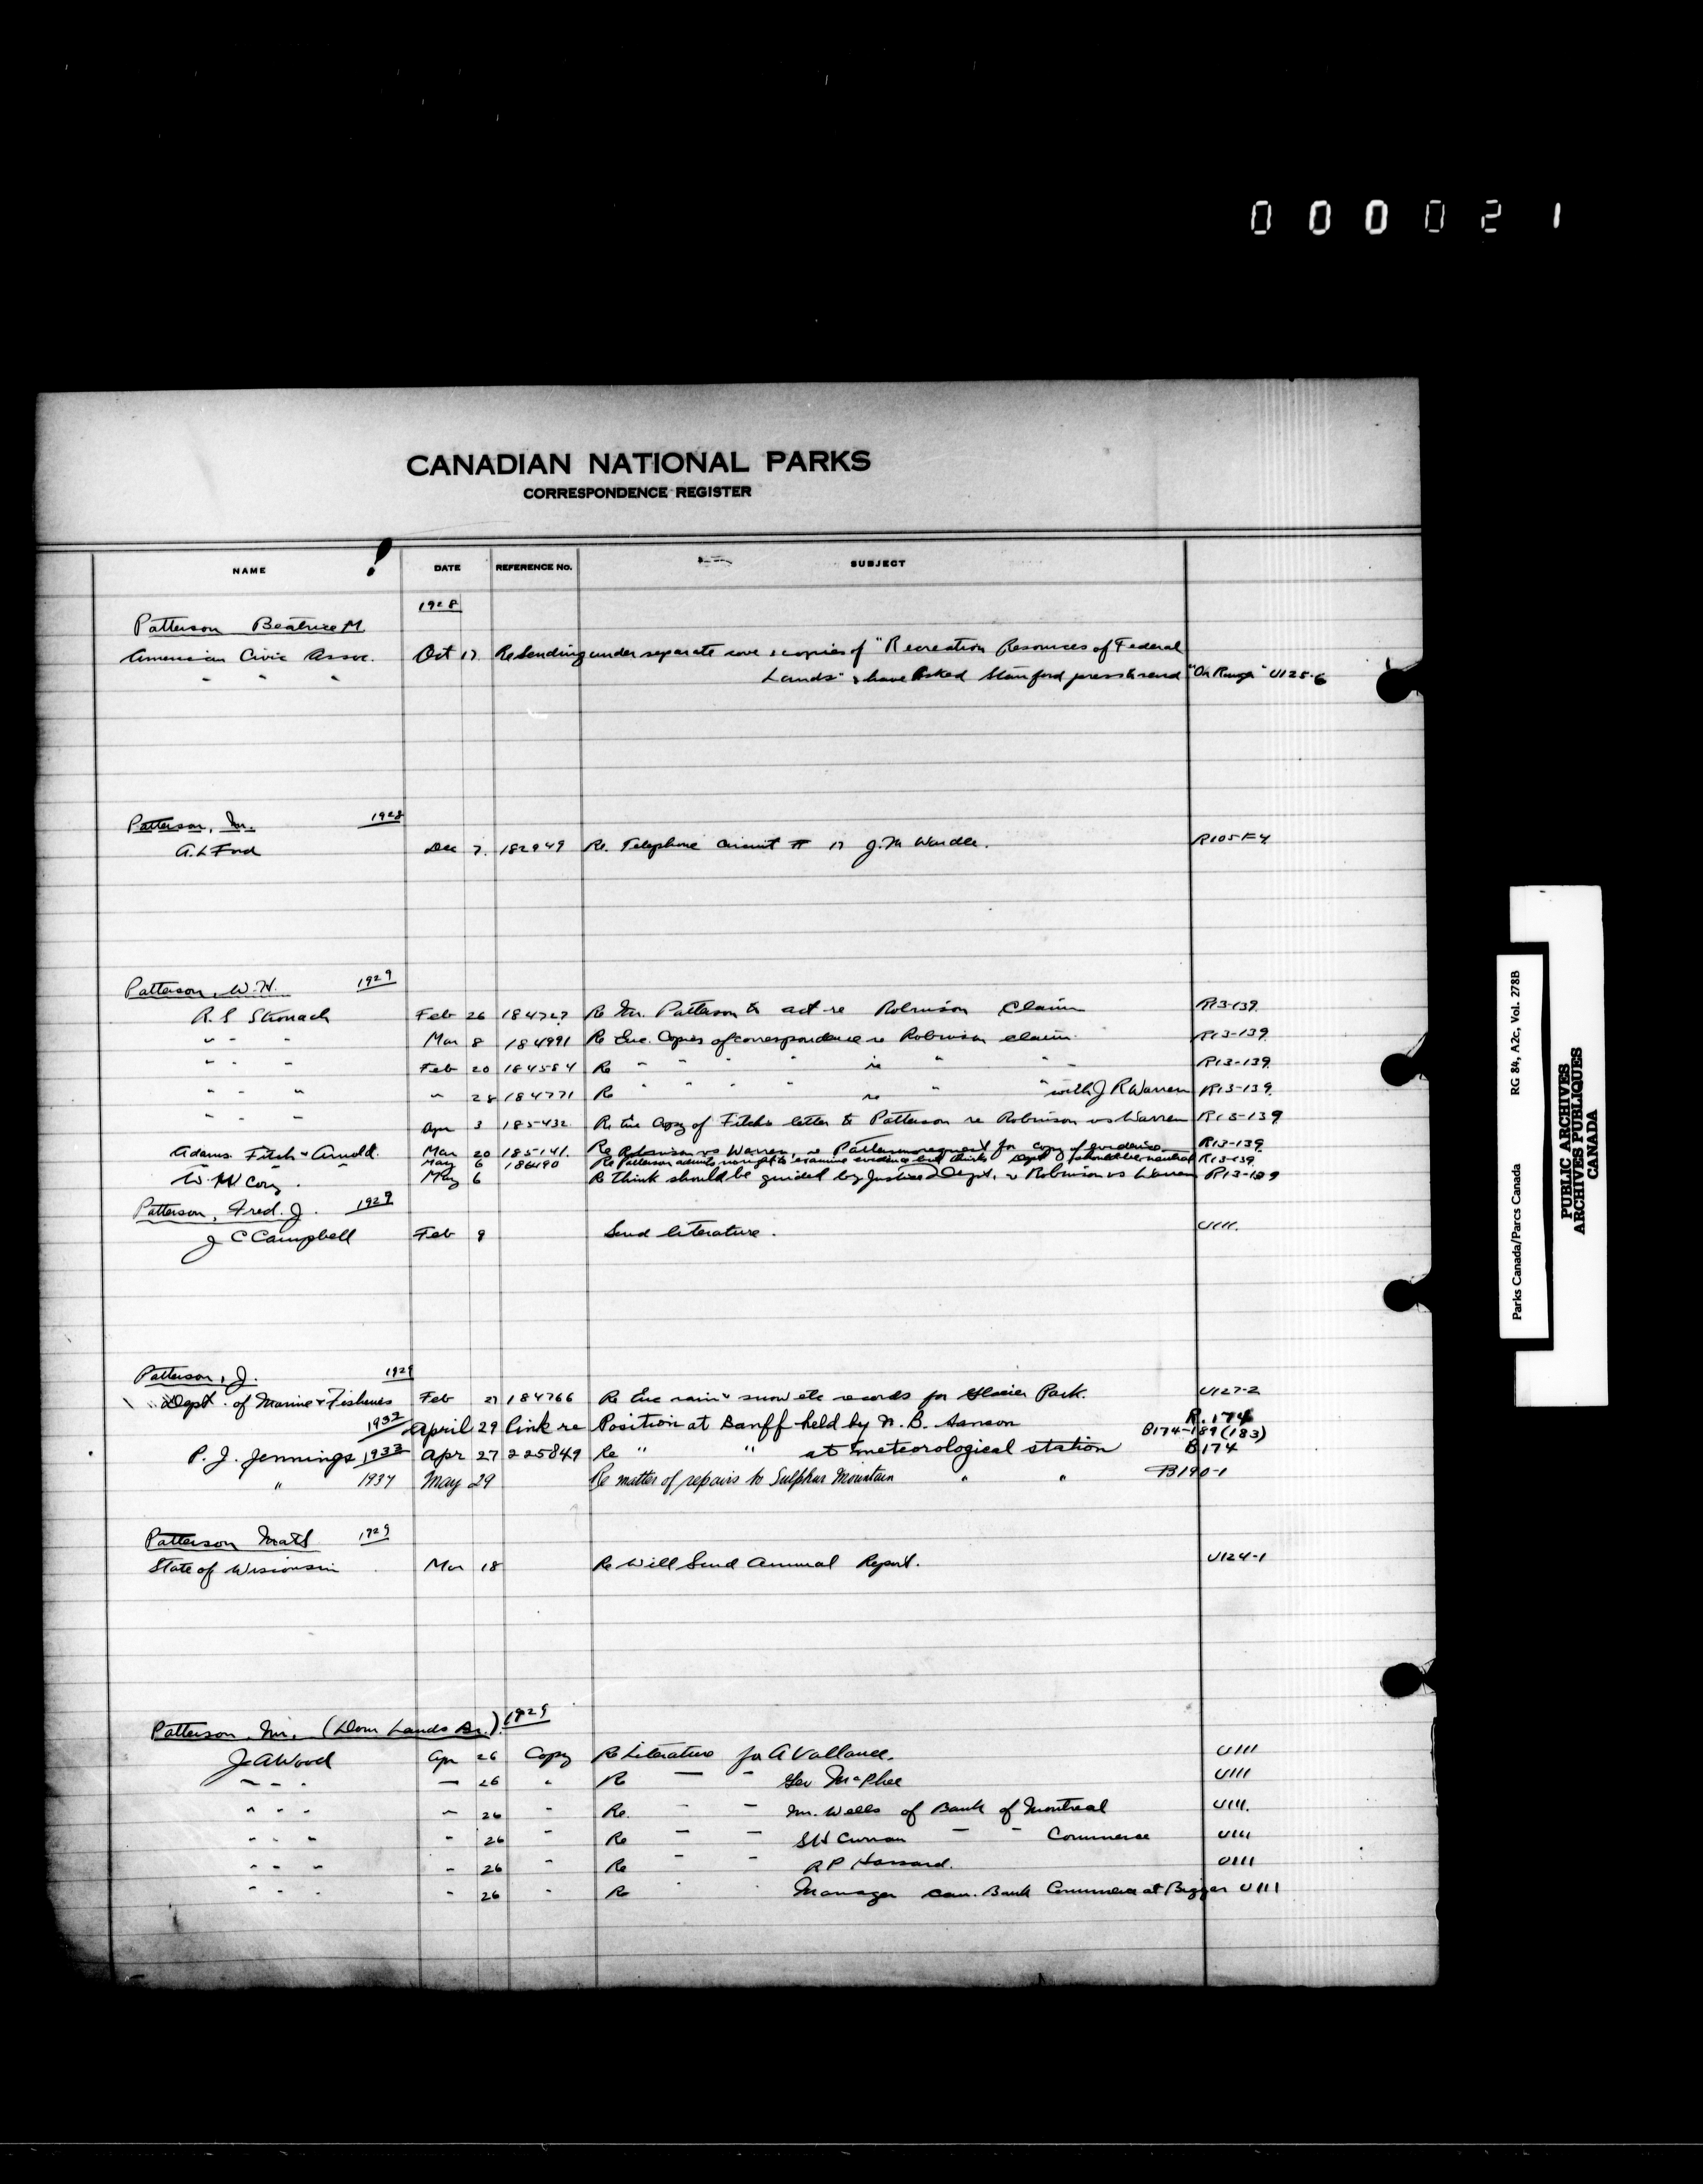 0 0 0 0 2 1
CANADIAN NATIONAL PARKS
CORRESPONDENCE REGISTER
NAME DATE REFERENCE NO. SUBJECT
1928
Patterson Beatrice M
American Civic Assoc. Oct 17 Re Sending under separate cove copies of "Recreation Resources of Federal
" " " Lands" & have asked Stanford press to send "On Range" U125-6
Patterson, Mr. 1928
A. L Ford Dec 7. 182949 Re. Telephone Circuit # 17 J. M Wardle. R105-F4
Patterson, W. H. 1929
R. S Stronach Feb 26 184727 Re Mr. Patterson to act re Robinson Claim R13-139
" " " Mar 8 184991 Re Enc. Copies of correspondence re Robinson claim. R13-139
" " " Feb 20 184584 Re " " " " re " " R13-139
" " " " 28 184771 Re " " " " re " " with J R Warren R13-139
" " " Apr 3 185432 Re Enc Copy of Fitch's letter to Patterson re Robinson vs Warren R13-139
Adams. Fitch & Arnold. Mar 20 185141. Re Robinson vs Warren, re Patterson request for copy of evidence R13-139
" " " May 6 186490 Re Patterson to examine evidence but thinks Dept should be neutral R13-139
W. W Cory. May 6 Re think should be guided by Justice Dept. re Robinson vs Warren R13-139
Patterson, Fred. J. 1929
J C Campbell Feb 9 Send literature. U111.
Patterson, J. 1929
Dept. of Marine & Fisheries Feb 27 184766 Re Enc rain & snow etc records for Glacier Park. U127-2
1932 April 29 link re Position at Banff held by N. B. Sanson R.174
B174-189 (183)
P. J. Jennings 1933 Apr 27 225849 Re " " at meteorological station B174
" 1934 May 29 Re matter of repairs to Sulphur Mountain " " B190-1
Patterson Matt 1929
State of Wisconsin Mar 18 Re Will Send Annual Report. U124-1
Patterson, Mr. (Dom Lands Br.) 1929
J. A Wood Apr 26 Copy Re Literature for A Vallance. U111
" " " " 26 " Re " " Geo McPhee U111
" " " " 26 " Re. " " Mr. Wells of Bank of Montreal U111.
" " " " 26 " Re " " S H Curran " " Commerce U111
" " " " 26 " Re " " R P Hassard. U111
" " " " 26 " Re " " Manager Can. Bank Commerce at Biggar U111
Parks Canada/Parcs Canada RG 84, A2c, Vol. 278B
PUBLIC ARCHIVES
ARCHIVES PUBLIQUES
CANADA